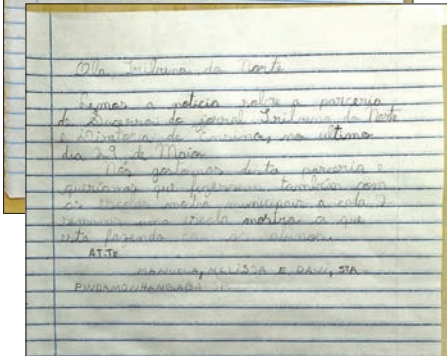 Ola, Tribuna da Norte
Lemos a noticia sobre a parceria
de Sucesso do jornal Tribuna do Norte
e Diretoria de Ensino, no ultimo
dia 29 de Maio.
Nós gostamos desta parceria e
queriamos que fizessem também com
as escolas municipais a cada 2
semanas uma escola mostra o que
esta fazendo com os alunos.
ATTE
MANUELA, MELISSA E DAVI, 5ºA
PINDAMONHANGABA SP.